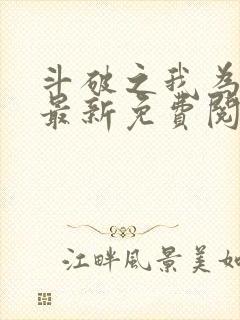 斗破之我为
最新免費閱
江畔风景美如